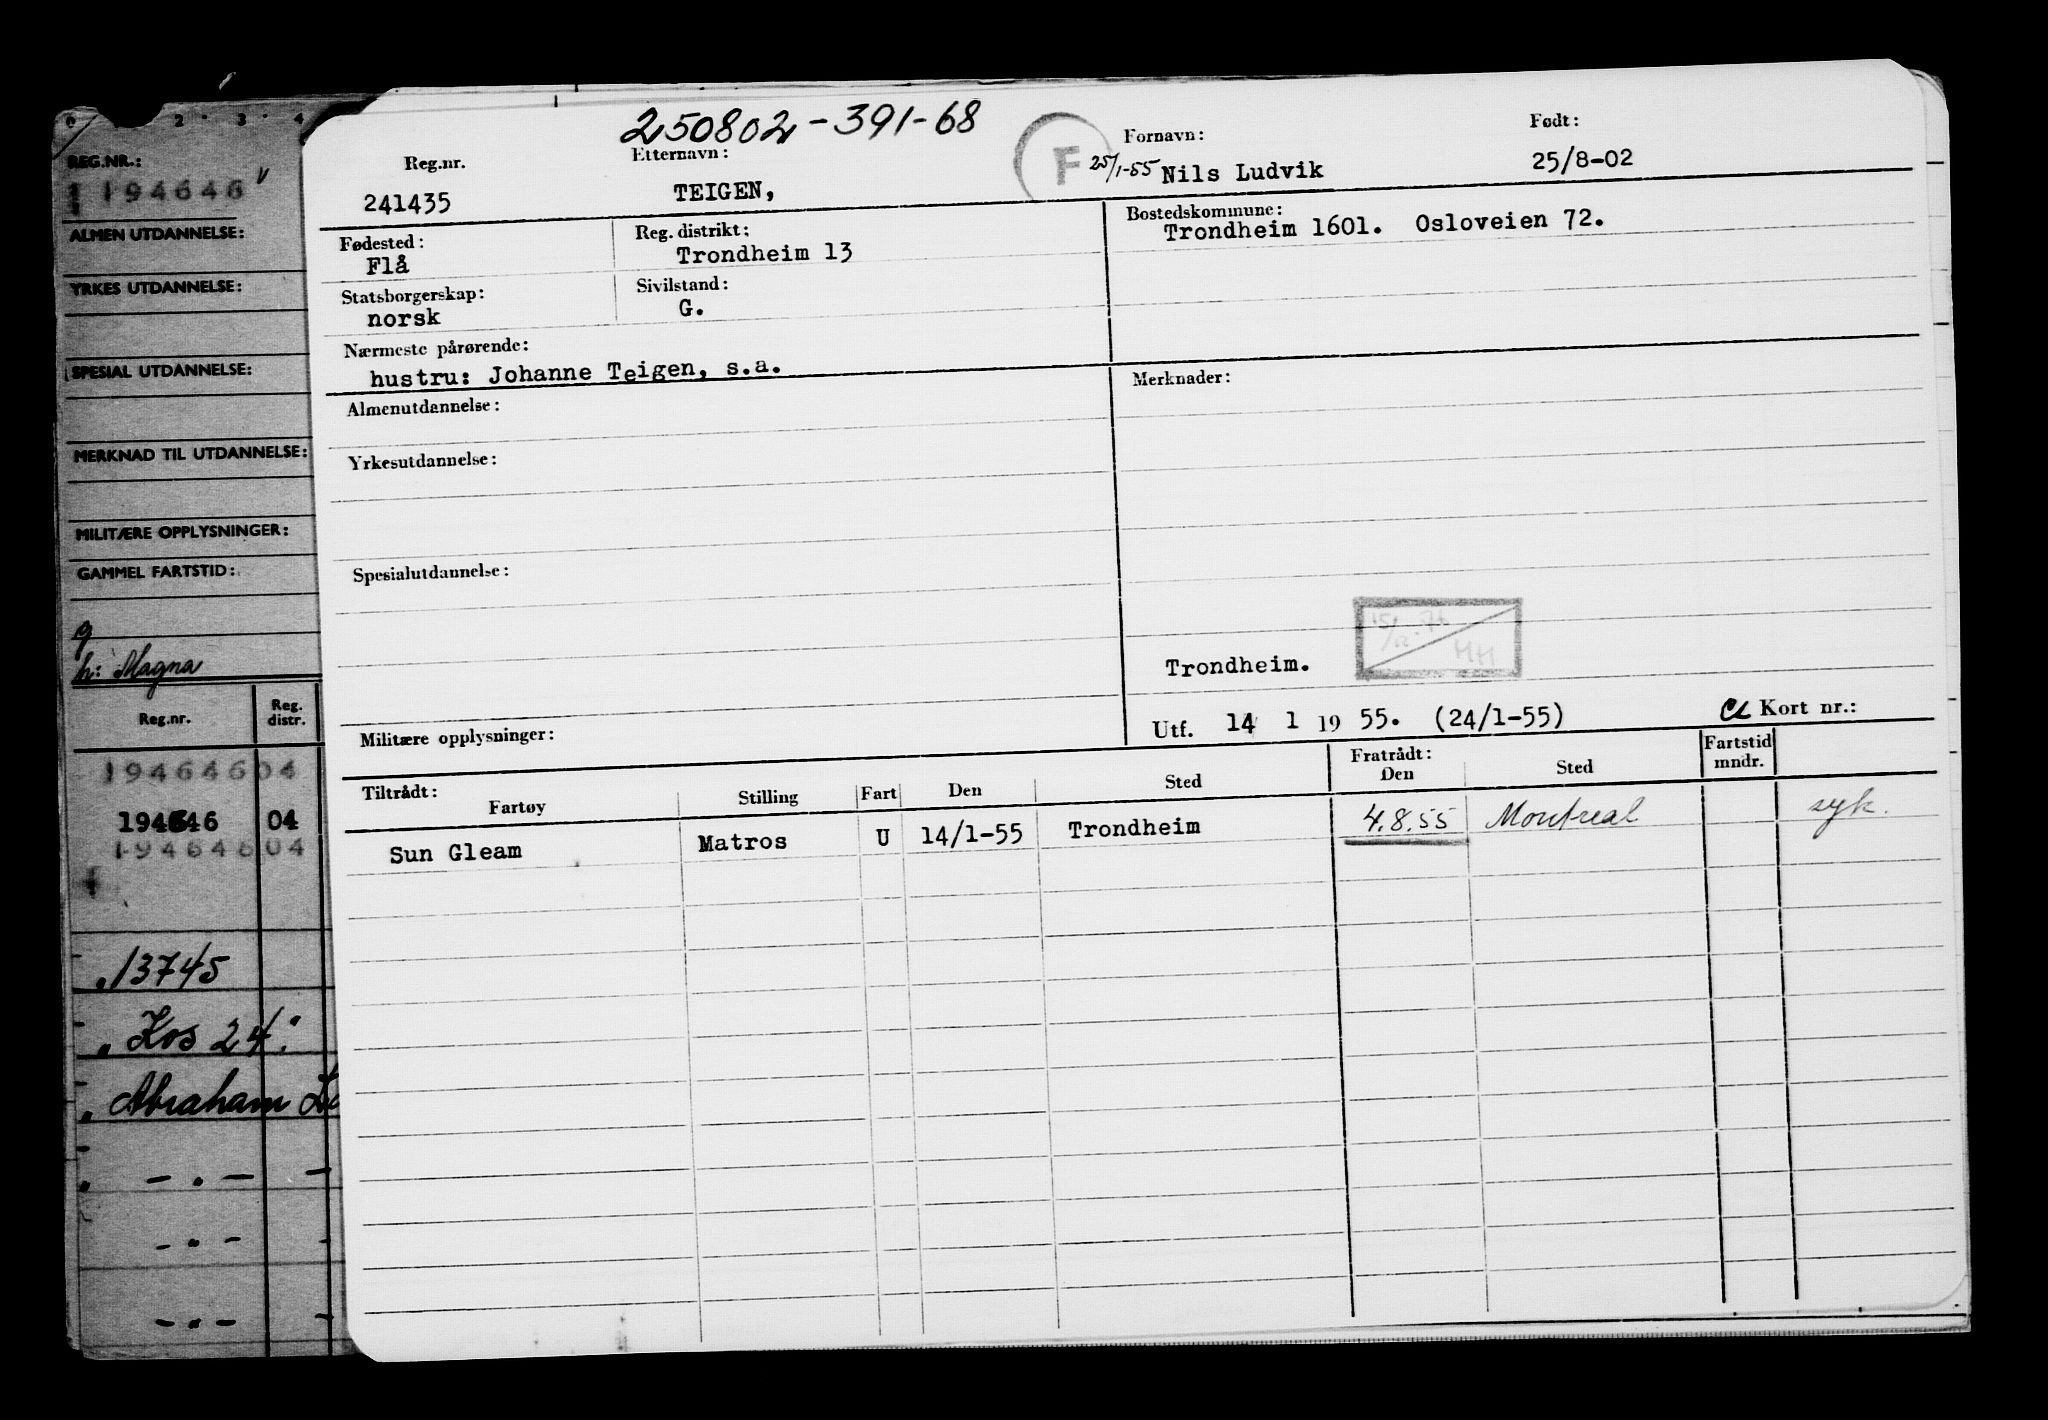 0 2 3 4
REG.NR.:
194646
ALMEN UTDANNELSE:
YRKES UTDANNELSE:
SPESIAL UTDANNELSE:
MERKNAD TIL UTDANNELSE:
MILITÆRE OPPLYSNINGER:
GAMMEL FARTSTID:
g
h: Magna
Reg.nr. Reg. distr.
194646 04
194646 04
194646 04
13745
Kos 24
Abraham
250802-391-68
Reg.nr. Etternavn: F Fornavn: Født:
241435 TEIGEN, 25/1-55 Nils Ludvik 25/8-02
Fødested: Reg. distrikt: Bostedskommune:
Flå Trondheim 13 Trondheim 1601. Osloveien 72.
Statsborgerskap: Sivilstand:
norsk G.
Nærmeste pårørende:
hustru: Johanne Teigen, s.a.
Almenutdannelse: Merknader:
Yrkesutdannelse:
Spesialutdannelse:
Trondheim. HH
Militære opplysninger: Utf. 14 1 19 55. (24/1-55) Kort nr.:
Tiltrådt: Fratrådt: Fartstid mndr.
Fartøy Stilling Fart Den Sted Den Sted
Sun Gleam Matros U 14/1-55 Trondheim 4.8.55 Montreal syk.